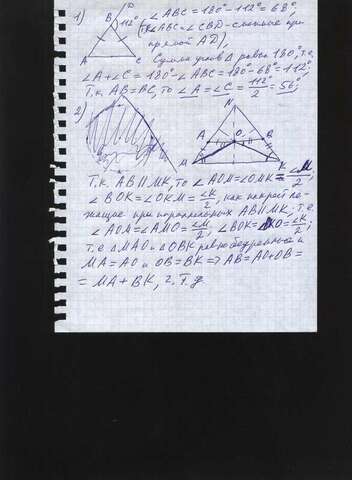 1) ∠ABC=180°-112°=68°,
B D 112° (т.к. ∠ABC и ∠CBD - смежные при
прямой AD),
A C Сумма углов Δ равна 180°, т.е.
∠A+∠C=180°-∠ABC=180°-68°=112°;
Т.к. AB=BC, то ∠A=∠C=112°/2=56°;
2) N
A O B
M K
Т.к. AB∥MK, то ∠AOM=∠OMK=∠M/2;
∠BOK=∠OKM=∠K/2, как накрест ле-
жащие при параллельных AB∥MK, т.е.
∠AOA=∠AMO=∠M/2; ∠BOK=∠BKO=∠K/2;
т.е ΔMAO и ΔOBK равнобедренные и
MA=AO и OB=BK ⇒ AB=AO+OB=
=MA+BK, ч.т.д.